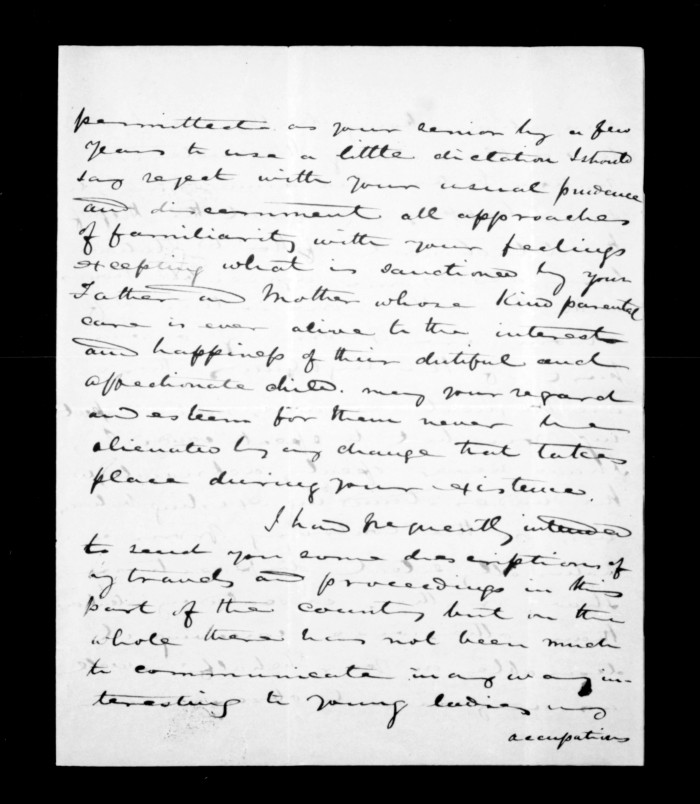 permitted as your senior by a few
years to use a little dictation I should
say reject with your usual prudence
and discernment all approaches
of familiarity with your feelings
excepting what is sanctioned by your
Father and Mother whose kind parental
care is ever alive to the interest
and happiness of their dutiful and
affectionate child. may your regard
and esteem for them never be
alienated by any change that takes
place during your existence.
I had frequently intended
to send you some descriptions of
my travels and proceedings in this
part of the country but on the
whole there has not been much
to communicate in any way in-
teresting to young ladies my
occupations